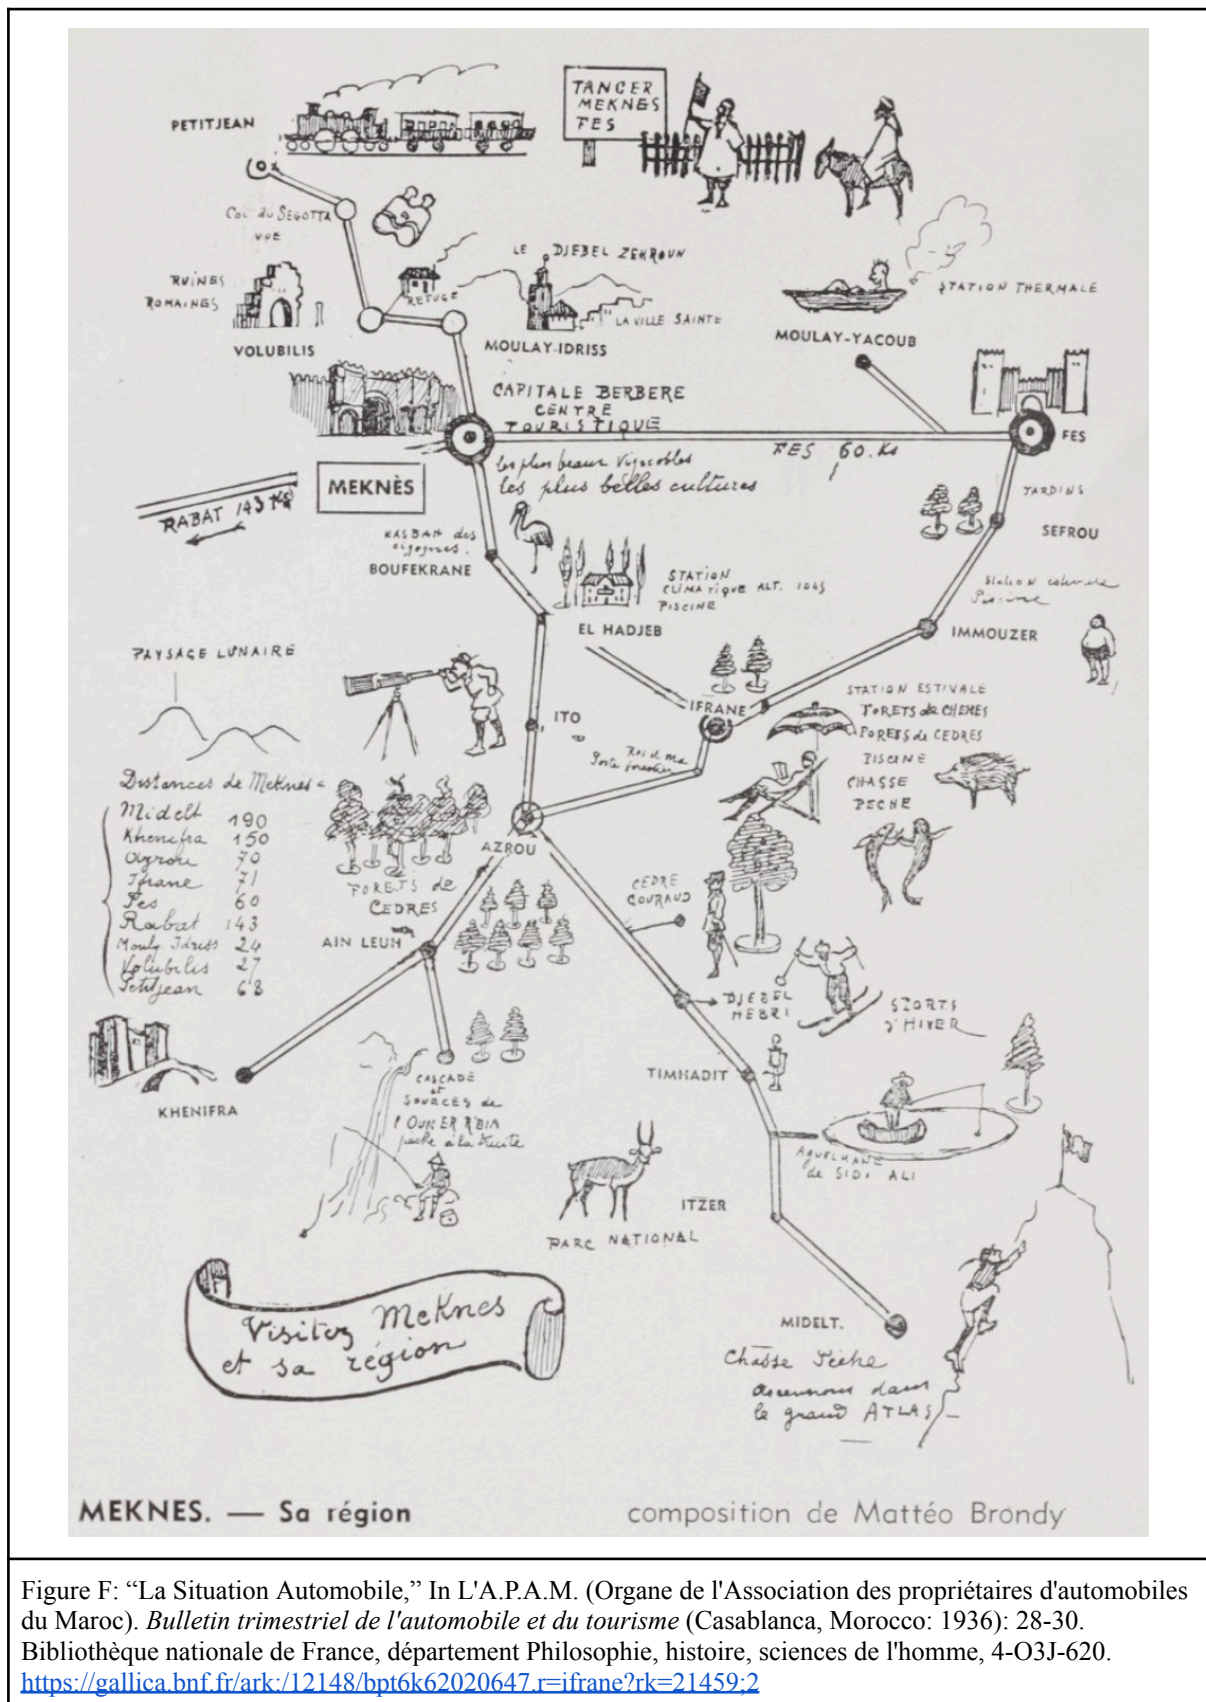 PETITJEAN
TANGER
MEKNES
FES
COL du SEGOTTA
VUE
RUINES
ROMAINES
VOLUBILIS
REFUGE
LE DJEBEL ZERHOUN
LA VILLE SAINTE
MOULAY-IDRISS
STATION THERMALE
MOULAY-YACOUB
CAPITALE BERBERE
CENTRE
TOURISTIQUE
FES
FES 60. Ks
les plus beaux vignobles
les plus belles cultures
MEKNÈS
RABAT 143 Ks
KASBAH des
cigognes.
BOUFEKRANE
STATION
CLIMATIQUE ALT. 1045
PISCINE
EL HADJEB
JARDINS
SEFROU
Station estivale
Piscine
IMMOUZER
PAYSAGE LUNAIRE
ITO
IFRANE
STATION ESTIVALE
FORETS de CHENES
FORETS de CEDRES
PISCINE
CHASSE
PECHE
Poste forestier
AZROU
Distances de Meknes =
Midelt 190
Khenifra 150
Azrou 70
Ifrane 71
Fes 60
Rabat 143
Mouly Idriss 24
Volubilis 27
Petitjean 68
FORETS de
CEDRES
AIN LEUH
CEDRE
GOURAUD
DJEBEL
HEBRI
SPORTS
D'HIVER
KHENIFRA
CASCADE
et
SOURCES de
l'OUM ER R'BIA
pêche à la truite
TIMHADIT
AGUELMANE
de SIDI ALI
ITZER
PARC NATIONAL
MIDELT.
Chasse Pêche
ascensions dans
le grand ATLAS
Visitez Meknes
et sa région
MEKNES. — Sa région
composition de Mattéo Brondy
Figure F: “La Situation Automobile,” In L'A.P.A.M. (Organe de l'Association des propriétaires d'automobiles
du Maroc). Bulletin trimestriel de l'automobile et du tourisme (Casablanca, Morocco: 1936): 28-30.
Bibliothèque nationale de France, département Philosophie, histoire, sciences de l'homme, 4-O3J-620.
https://gallica.bnf.fr/ark:/12148/bpt6k62020647.r=ifrane?rk=21459;2